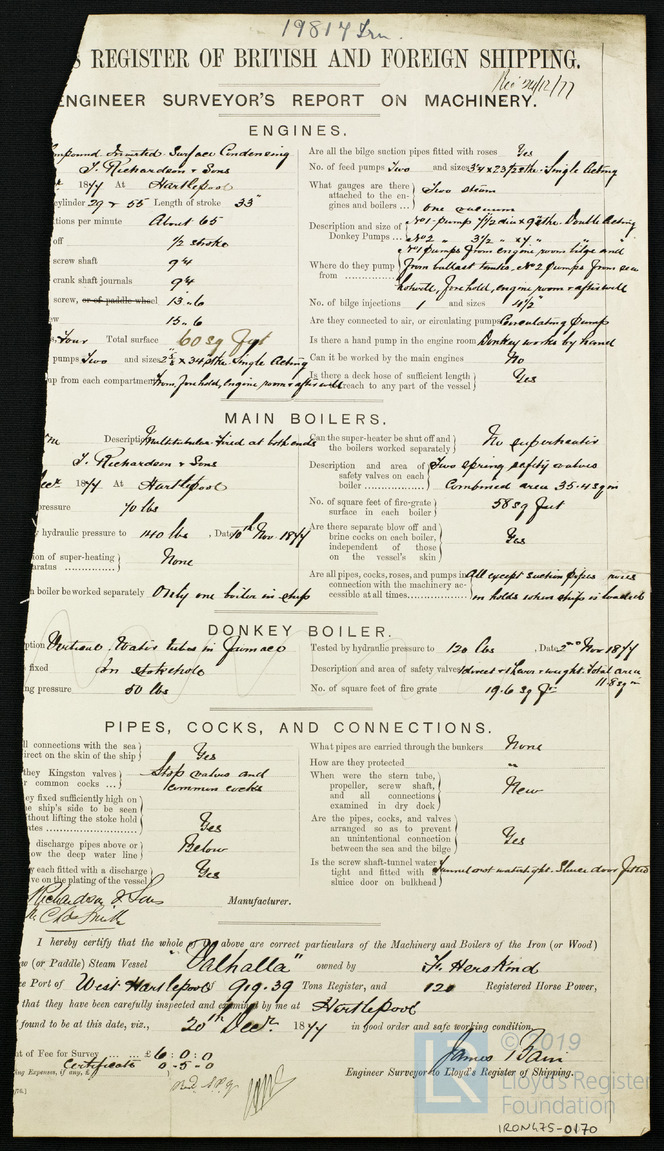 19817 Irn.
S REGISTER OF BRITISH AND FOREIGN SHIPPING.
Rec 24/12/77
ENGINEER SURVEYOR'S REPORT ON MACHINERY.
ENGINES.
mpound Inverted Surface Condensing
T. Richardson & Sons
1877 At Hartlepool
cylinder 29 & 55 Length of stroke 33"
tions per minute About 65
off 1/2 stroke
screw shaft 9 3/4
crank shaft journals 9 3/4
screw, or of paddle wheel 13.6
ew 15.6
s, Four Total surface 60 sq feet
pumps Two and sizes Single Acting
up from each compartment From fore hold, engine room & after well
Are all the bilge suction pipes fitted with roses Yes
No. of feed pumps Two and sizes Single Acting
What gauges are there attached to the engines and boilers ... Two steam one vacuum
Description and size of Donkey Pumps ... No 1 pump Double Acting
No 2 " 3 1/2 " x 7 " "
Where do they pump from ............ No 1 pumps from engine room bilge and from ballast tanks. No 2 pumps from sea hotwell, fore hold, engine room & after well
No. of bilge injections 1 and sizes 4 1/2"
Are they connected to air, or circulating pumps Circulating pump
Is there a hand pump in the engine room Donkey works by hand
Can it be worked by the main engines No
Is there a deck hose of sufficient length to reach to any part of the vessel Yes
MAIN BOILERS.
Description Multitubular Fired at both ends
T. Richardson & Sons
Decr 1877 At Hartlepool
pressure 70 lbs
hydraulic pressure to 140 lbs, Date 10th Nov. 1877
ion of super-heating
aratus ............ None
n boiler be worked separately Only one boiler in ship
Can the super-heater be shut off and the boilers worked separately No superheater
Description and area of safety valves on each boiler ............ Two spring safety valves Combined area 35.4 sq in
No. of square feet of fire-grate surface in each boiler 58 sq feet
Are there separate blow off and brine cocks on each boiler, independent of those on the vessel's skin Yes
Are all pipes, cocks, roses, and pumps in connection with the machinery accessible at all times............ All except suction pipes roses in holds when ship is loaded
DONKEY BOILER.
ption Vertical. Water tubes in furnace
fixed In stokehole
ing pressure 50 lbs
Tested by hydraulic pressure to 120 lbs, Date 2nd Nov 1877
Description and area of safety valves direct & lever & weight. Total area 11.8 sq in
No. of square feet of fire grate 19.6 sq ft
PIPES, COCKS, AND CONNECTIONS.
ll connections with the sea
irect on the skin of the ship Yes
they Kingston valves
r common cocks ... Stop valves and common cocks
ey fixed sufficiently high on
e ship's side to be seen
ithout lifting the stoke hold
ates ............ Yes
discharge pipes above or
ow the deep water line Below
y each fitted with a discharge
ve on the plating of the vessel Yes
What pipes are carried through the bunkers None
How are they protected "
When were the stern tube, propeller, screw shaft, and all connections examined in dry dock New
Are the pipes, cocks, and valves arranged so as to prevent an unintentional connection between the sea and the bilge Yes
Is the screw shaft-tunnel water tight and fitted with a sluice door on bulkhead Tunnel not watertight. Sluice door fitted
Richardson & Sons Manufacturer.
I hereby certify that the whole of the above are correct particulars of the Machinery and Boilers of the Iron (or Wood)
w (or Paddle) Steam Vessel "Valhalla" owned by F. Herskind
e Port of West Hartlepool 919.39 Tons Register, and 120 Registered Horse Power,
that they have been carefully inspected and examined by me at Hartlepool
found to be at this date, viz., 20th Decr. 1877 in good order and safe working condition.
nt of Fee for Survey ... ... £ 6 : 0 : 0
Certificate 0 - 5 - 0
ing Expenses, if any, £
James Bain
Engineer Surveyor to Lloyd's Register of Shipping.
© 2019
LR
Lloyd's Register
Foundation
IRON475-0170